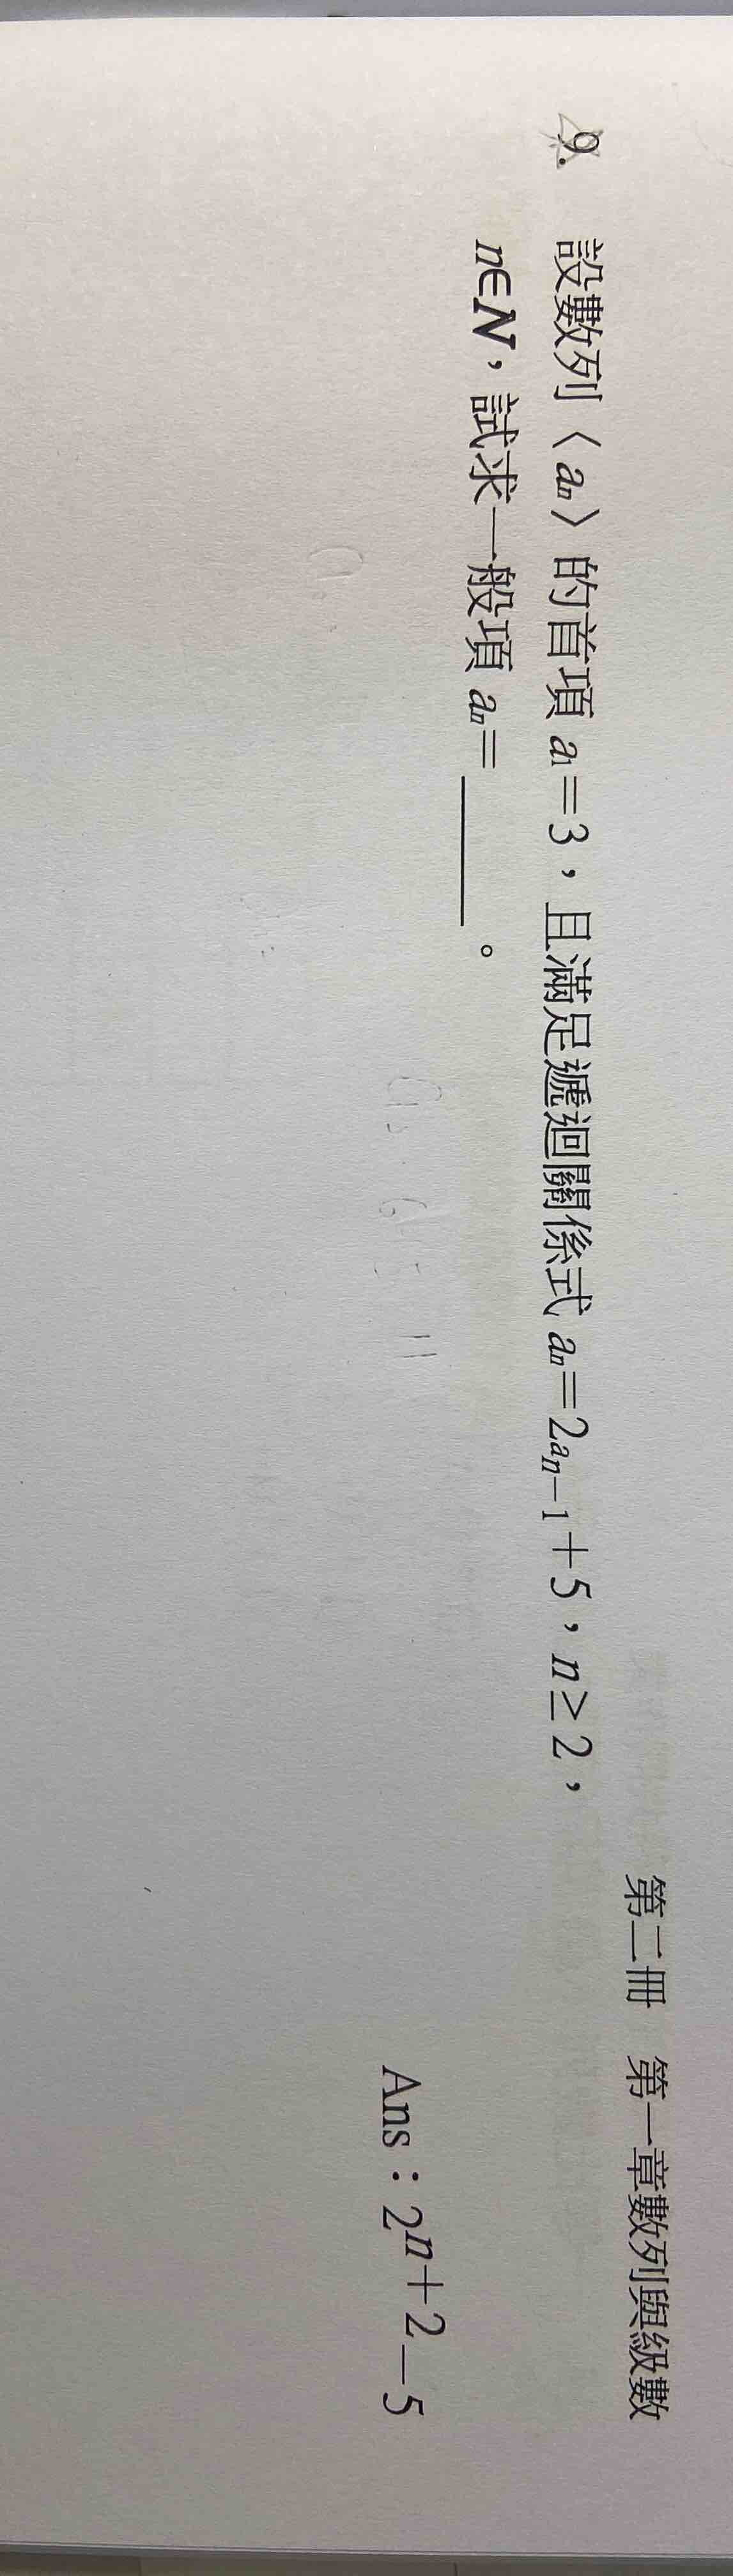 第二冊　第一章數列與級數
9.　設數列〈aₙ〉的首項 a₁=3，且滿足遞迴關係式 aₙ=2aₙ₋₁+5，n≥2，
n∈N，試求一般項 aₙ=＿＿＿。
Ans：2ⁿ⁺²－5